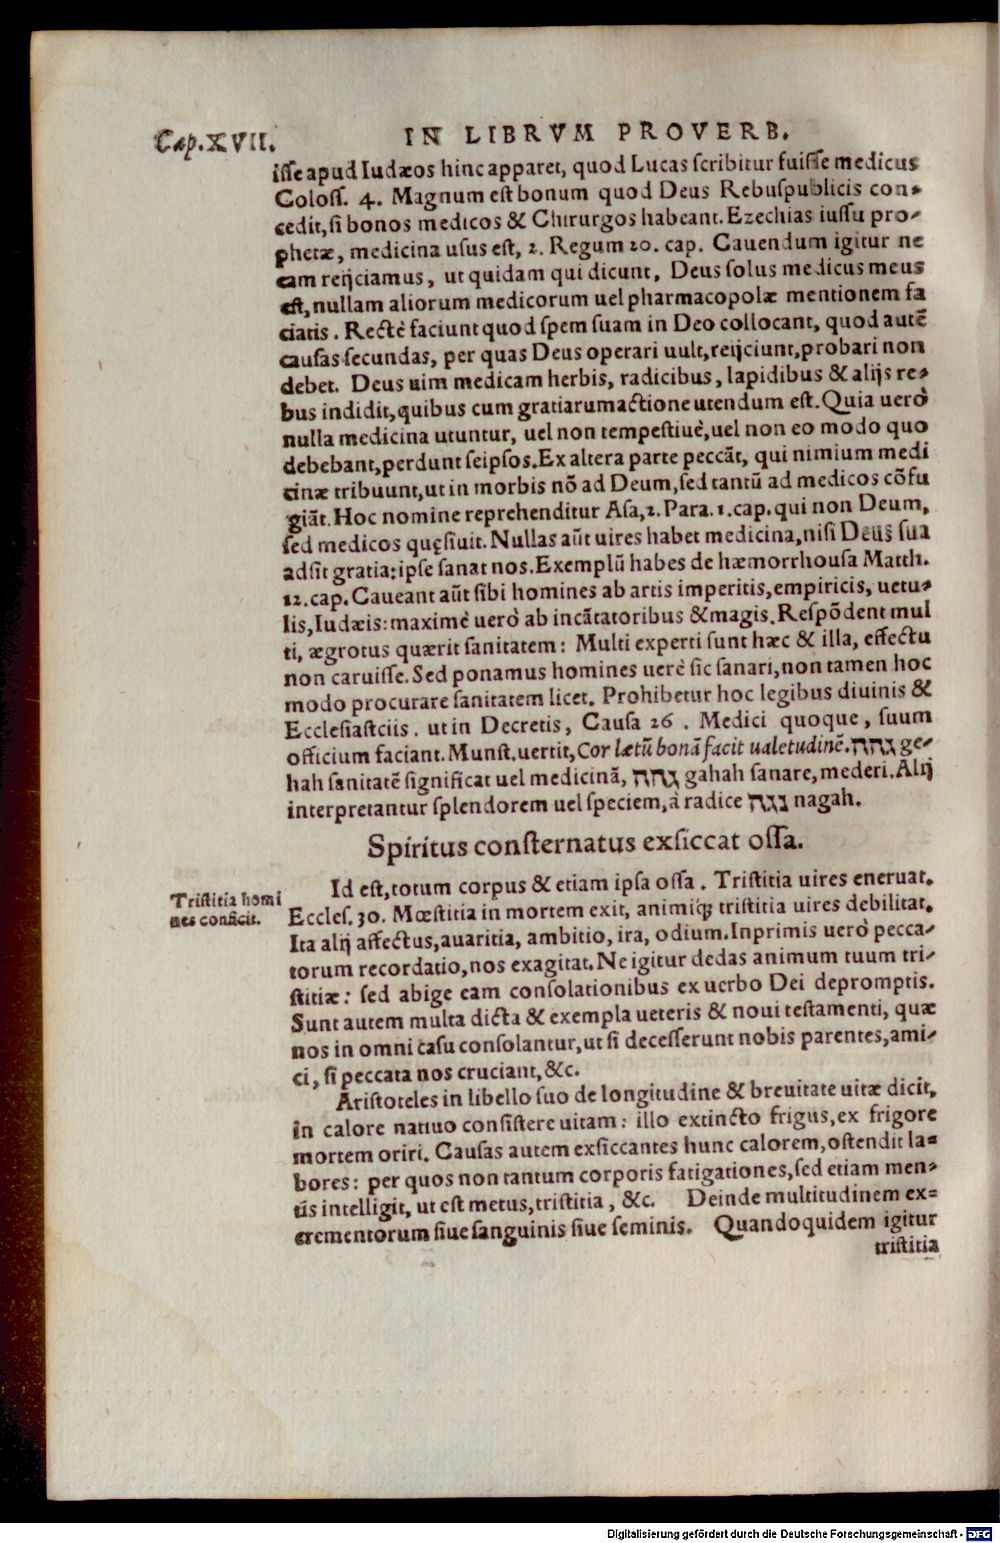 Cap. XVII.
IN LIBRVM PROVERB.
isse apud Iudæos hinc apparet, quod Lucas scribitur fuisse medicus
Coloss. 4. Magnum est bonum quod Deus Rebuspublicis con-
cedit, si bonos medicos & Chirurgos habeant. Ezechias iussu pro-
phetæ, medicina usus est, 2. Regum 20. cap. Cauendum igitur ne
eam reijciamus, ut quidam qui dicunt, Deus solus medicus meus
est, nullam aliorum medicorum uel pharmacopolæ mentionem fa
ciatis. Rectè faciunt quod spem suam in Deo collocant, quod autẽ
causas secundas, per quas Deus operari uult, reijciunt, probari non
debet. Deus uim medicam herbis, radicibus, lapidibus & alijs re-
bus indidit, quibus cum gratiarumactione utendum est. Quia uerò
nulla medicina utuntur, uel non tempestiuè, uel non eo modo quo
debebant, perdunt seipsos. Ex altera parte peccãt, qui nimium medi
cinæ tribuunt, ut in morbis nõ ad Deum, sed tantũ ad medicos cõfu
giãt. Hoc nomine reprehenditur Asa, 2. Para. 1. cap. qui non Deum,
sed medicos quęsiuit. Nullas aũt uires habet medicina, nisi Deus sua
adsit gratia: ipse sanat nos. Exemplũ habes de hæmorrhousa Matth.
12. cap. Caueant aũt sibi homines ab artis imperitis, empiricis, uetu-
lis, Iudæis: maximè uerò ab incãtatoribus & magis. Respõdent mul
ti, ægrotus quærit sanitatem: Multi experti sunt hæc & illa, effectu
non caruisse. Sed ponamus homines uerè sic sanari, non tamen hoc
modo procurare sanitatem licet. Prohibetur hoc legibus diuinis &
Ecclesiastciis. ut in Decretis, Causa 26. Medici quoque, suum
officium faciant. Munst. uertit, Cor lætũ bonã facit ualetudinẽ. גהה ge-
hah sanitatẽ significat uel medicinã, גהה gahah sanare, mederi. Alij
interpretantur splendorem uel speciem, à radice נגה nagah.
Spiritus consternatus exsiccat ossa.
Tristitia homi
nes conficit.
Id est, totum corpus & etiam ipsa ossa. Tristitia uires eneruat.
Eccles. 30. Mœstitia in mortem exit, animiq́; tristitia uires debilitat.
Ita alij affectus, auaritia, ambitio, ira, odium. Inprimis uerò pecca-
torum recordatio, nos exagitat. Ne igitur dedas animum tuum tri-
stitiæ: sed abige eam consolationibus ex uerbo Dei depromptis.
Sunt autem multa dicta & exempla ueteris & noui testamenti, quæ
nos in omni casu consolantur, ut si decesserunt nobis parentes, ami-
ci, si peccata nos cruciant, &c.
Aristoteles in libello suo de longitudine & breuitate uitæ dicit,
in calore natiuo consistere uitam: illo extincto frigus, ex frigore
mortem oriri. Causas autem exsiccantes hunc calorem, ostendit la-
bores: per quos non tantum corporis fatigationes, sed etiam men-
tis intelligit, ut est metus, tristitia, &c. Deinde multitudinem ex-
crementorum siue sanguinis siue seminis. Quandoquidem igitur
tristitia
Digitalisierung gefördert durch die Deutsche Forschungsgemeinschaft - DFG